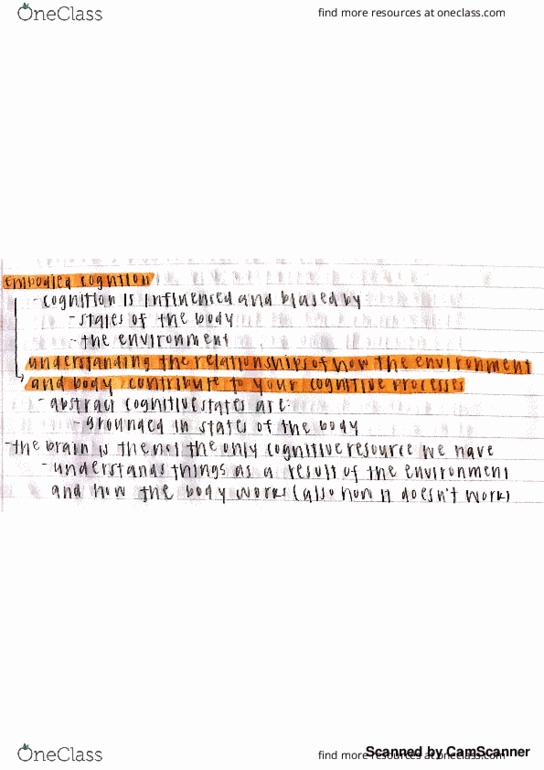 OneClass
find more resources at oneclass.com
embodied cognition
- cognition is influenced and biased by
- states of the body
- the environment
understanding the relationships of how the environment
and body contribute to your cognitive processes
- abstract cognitive states are:
- grounded in states of the body
- the brain is the not the only cognitive resource we have
- understands things as a result of the environment
and how the body works (also how it doesn't work)
OneClass
find more resources at oneclass.com
Scanned by CamScanner